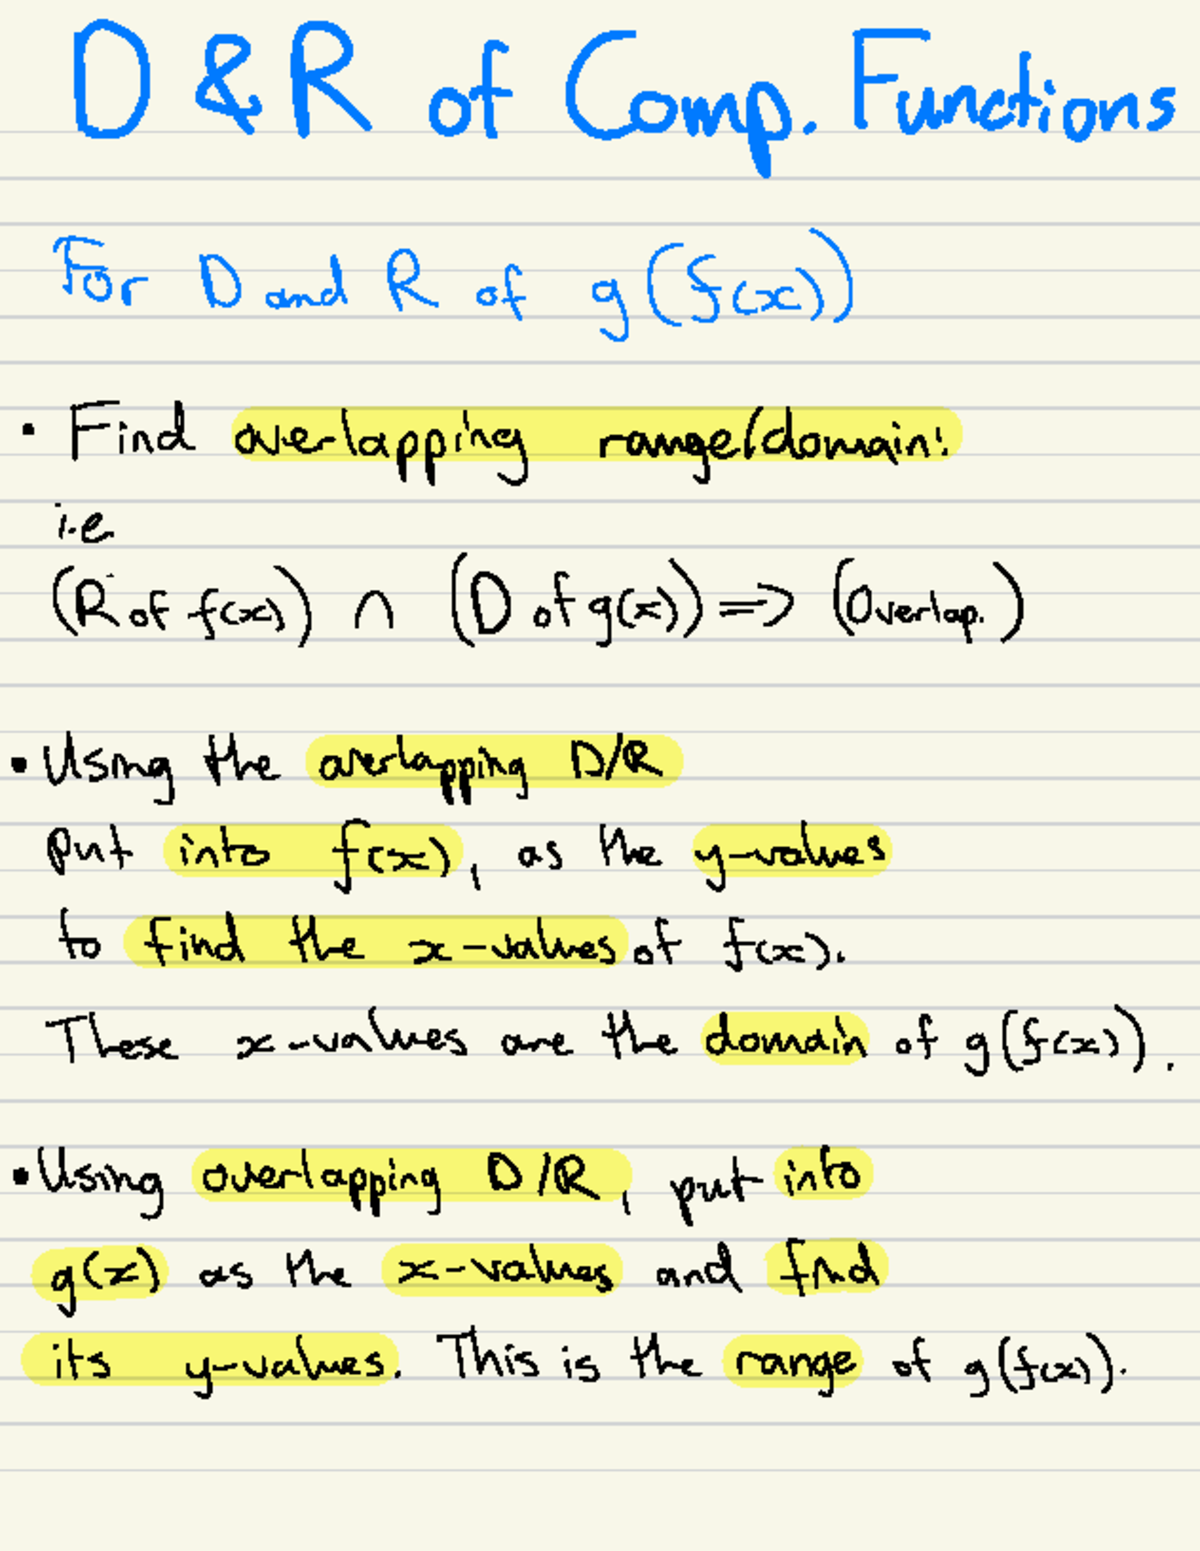 D & R of Comp. Functions
For D and R of g(f(x))
• Find overlapping range/domain:
i.e
(R of f(x)) ∩ (D of g(x)) => (Overlap.)
• Using the overlapping D/R
put into f(x), as the y-values
to find the x-values of f(x).
These x-values are the domain of g(f(x)).
• Using overlapping D/R, put into
g(x) as the x-values and find
its y-values. This is the range of g(f(x)).